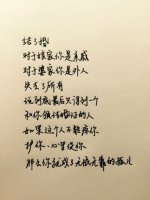 结了婚
对于娘家你是亲戚
对于婆家你是外人
失去了所有
说到底最后只得到一个
和你领结婚证的人
如果这个人不能疼你
护你、心里没你
那么你就成了无依无靠的孤儿